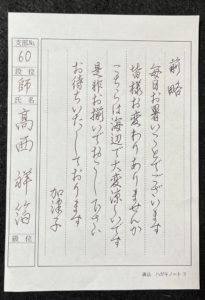 前略
毎日お暑いことでございます
皆様お変わりありませんか
こちらは海辺で大変涼しいです
是非お揃いでおこし下さい
お待ちいたしております
加津子
支部No.
60
段位
師
氏名
高西 祥
級位
書法 ハガキノート 3